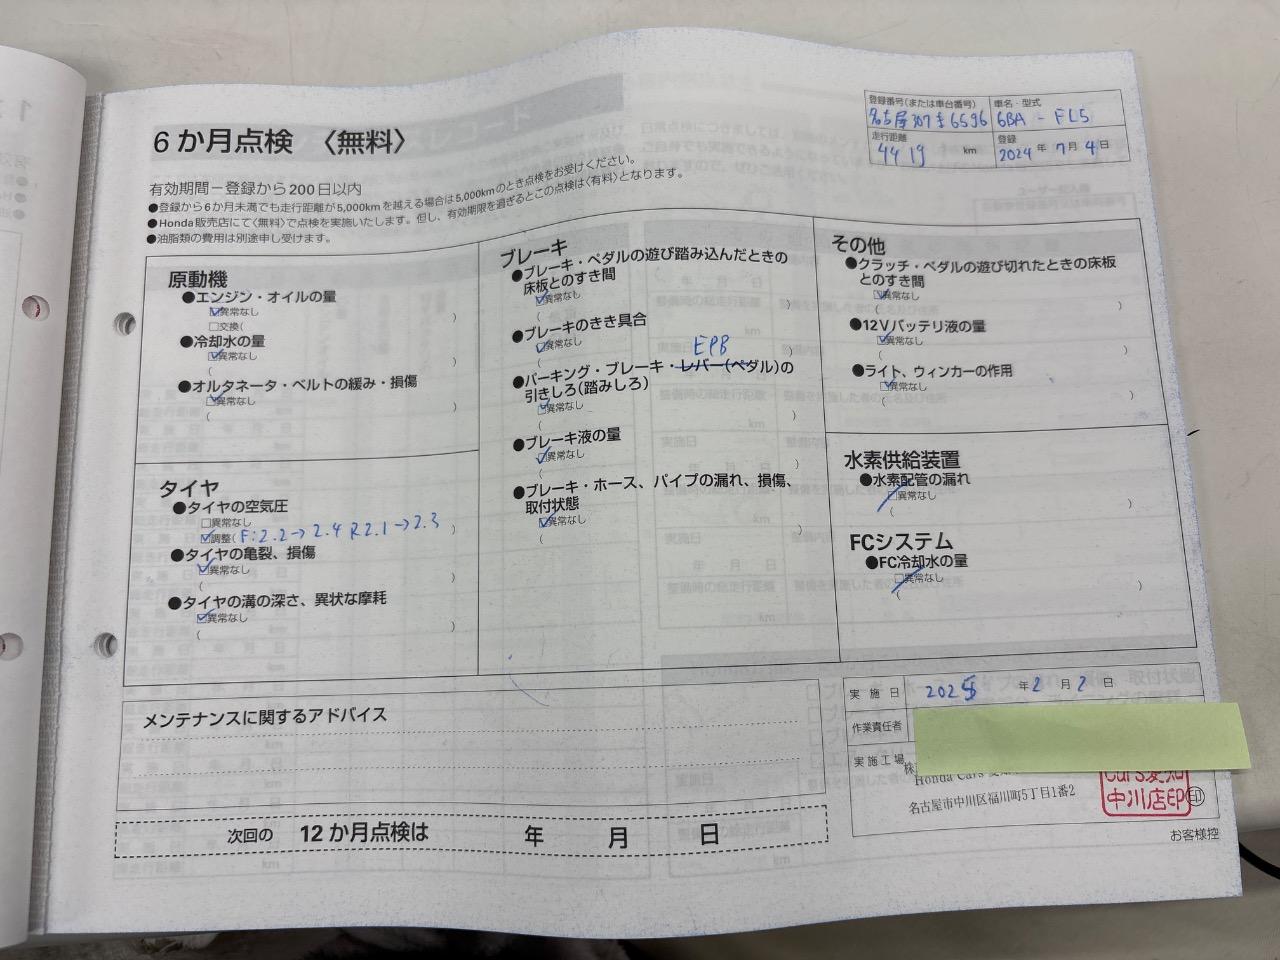 6か月点検 〈無料〉
有効期間－登録から200日以内
●登録から6か月未満でも走行距離が5,000kmを越える場合は5,000kmのとき点検をお受けください。
●Honda販売店にて〈無料〉で点検を実施いたします。但し、有効期限を過ぎるとこの点検は〈有料〉となります。
●油脂類の費用は別途申し受けます。
登録番号(または車台番号)
名古屋307 6596
車名・型式
6BA - FL5
走行距離
4419 km
登録
2024年7月4日
原動機
●エンジン・オイルの量
☑異常なし
□交換( )
●冷却水の量
☑異常なし
( )
●オルタネータ・ベルトの緩み・損傷
☑異常なし
( )
タイヤ
●タイヤの空気圧
□異常なし
☑調整(F:2.2→2.4 R2.1→2.3 )
●タイヤの亀裂、損傷
☑異常なし
( )
●タイヤの溝の深さ、異状な摩耗
☑異常なし
( )
ブレーキ
●ブレーキ・ペダルの遊び踏み込んだときの
床板とのすき間
☑異常なし
( )
●ブレーキのきき具合
☑異常なし
( )
EPB
●パーキング・ブレーキ・レバー(ペダル)の
引きしろ(踏みしろ)
☑異常なし
( )
●ブレーキ液の量
☑異常なし
( )
●ブレーキ・ホース、パイプの漏れ、損傷、
取付状態
☑異常なし
( )
その他
●クラッチ・ペダルの遊び切れたときの床板
とのすき間
☑異常なし
( )
●12Vバッテリ液の量
☑異常なし
( )
●ライト、ウィンカーの作用
☑異常なし
( )
水素供給装置
●水素配管の漏れ
□異常なし
( )
FCシステム
●FC冷却水の量
□異常なし
( )
メンテナンスに関するアドバイス
次回の 12か月点検は 年 月 日
実施日 2025年2月2日
作業責任者
実施工場
株
Honda Cars 愛
名古屋市中川区福川町5丁目1番2
Cars愛知
中川店印
印
お客様控